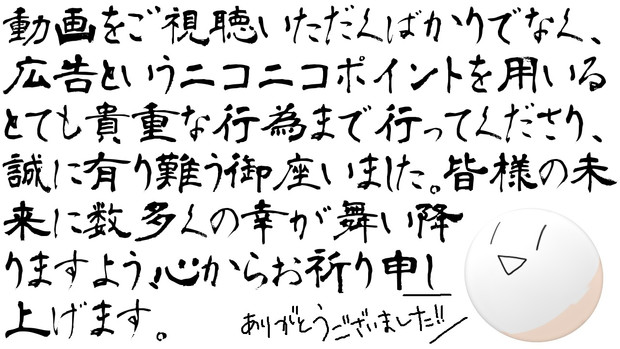 動画をご視聴いただくばかりでなく、
広告というニコニコポイントを用いる
とても貴重な行為まで行ってくださり、
誠に有り難う御座いました。皆様の未
来に数多くの幸が舞い降
りますよう、心からお祈り申し
上げます。
ありがとうございました!!